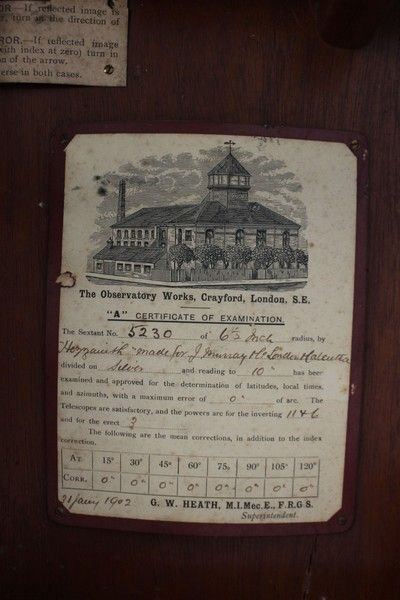 OR—If reflected image is
r, turn in the direction of
ROR.—If reflected image
with index at zero) turn in
on of the arrow.
erse in both cases.
The Observatory Works, Crayford, London, S.E.
"A" CERTIFICATE OF EXAMINATION.
The Sextant No. 5230 of 6 in Inch radius, by
"Hezzanith" made for J. Murray & Co London & Calcutta
divided on Silver and reading to 10" has been
examined and approved for the determination of latitudes, local times,
and azimuths, with a maximum error of 0" of arc. The
Telescopes are satisfactory, and the powers are for the inverting 11 & 6
and for the erect 3
The following are the mean corrections, in addition to the index
correction.
AT 15° 30° 45° 60° 75° 90° 105° 120°
CORR. 0" 0" 0" 0" 0" 0" 0" 0"
1902 G. W. HEATH, M.I.Mec.E., F.R.G.S.
Superintendent.